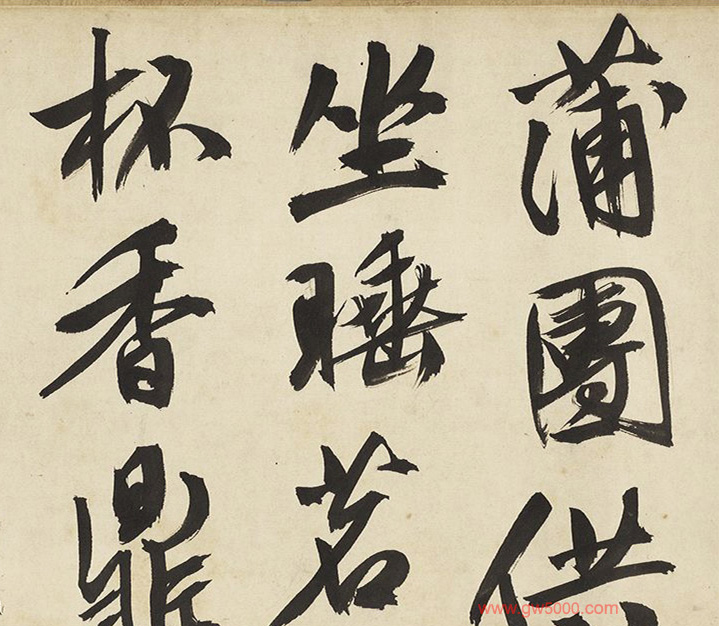 蒲團供
坐睡茗
杯香鼎
www.gw5000.com